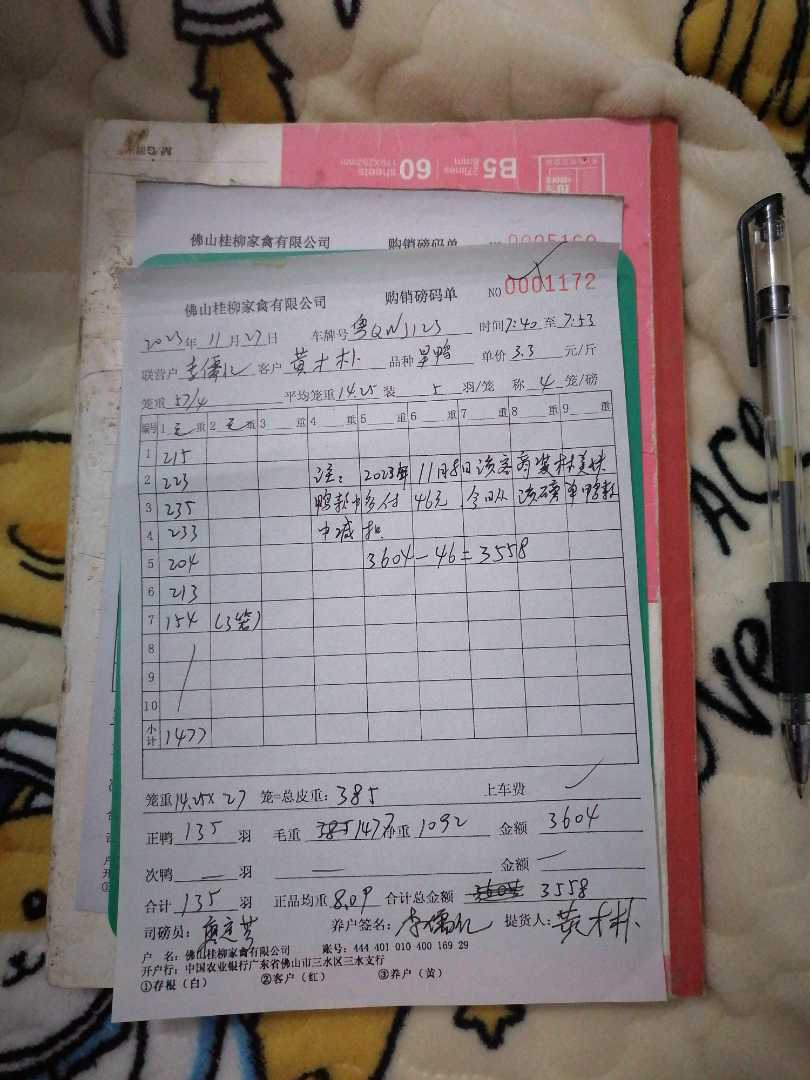 B5 27lines 8mm
60 sheets 179X252mm
M&G
佛山桂柳家禽有限公司 购销磅码单
佛山桂柳家禽有限公司 购销磅码单 NO 0001172
2023年11月27日 车牌号 粤QWJ123 时间7:40至7:53
联营户 李儒亿 客户 黄木朴 品种 旱鸭 单价 3.3 元/斤
笼重 57/4 平均笼重14.25 装 5 羽/笼 称 4 笼/磅
编号 1 毛 重 2 毛 重 3 重 4 重 5 重 6 重 7 重 8 重 9 重
1 215
2 223 注：2023年11月8日该客商装林美
3 235 鸭款中多付46元，今日从该磅单鸭款
4 233 中减扣
5 204 3604-46=3558
6 213
7 154 (3笼)
8
9
10
小计 1477
笼重14.25×27 笼=总皮重：385 上车费
正鸭 135 羽 毛重 385 1477 净重 1092 金额 3604
次鸭 — 羽 — 金额 —
合计 135 羽 正品均重 8.09 合计总金额 3604 3558
司磅员： 养户签名：李儒亿 提货人：黄木朴
户 名：佛山桂柳家禽有限公司 账号：444 401 010 400 169 29
开户行：中国农业银行广东省佛山市三水区三水支行
①存根（白） ②客户（红） ③养户（黄）